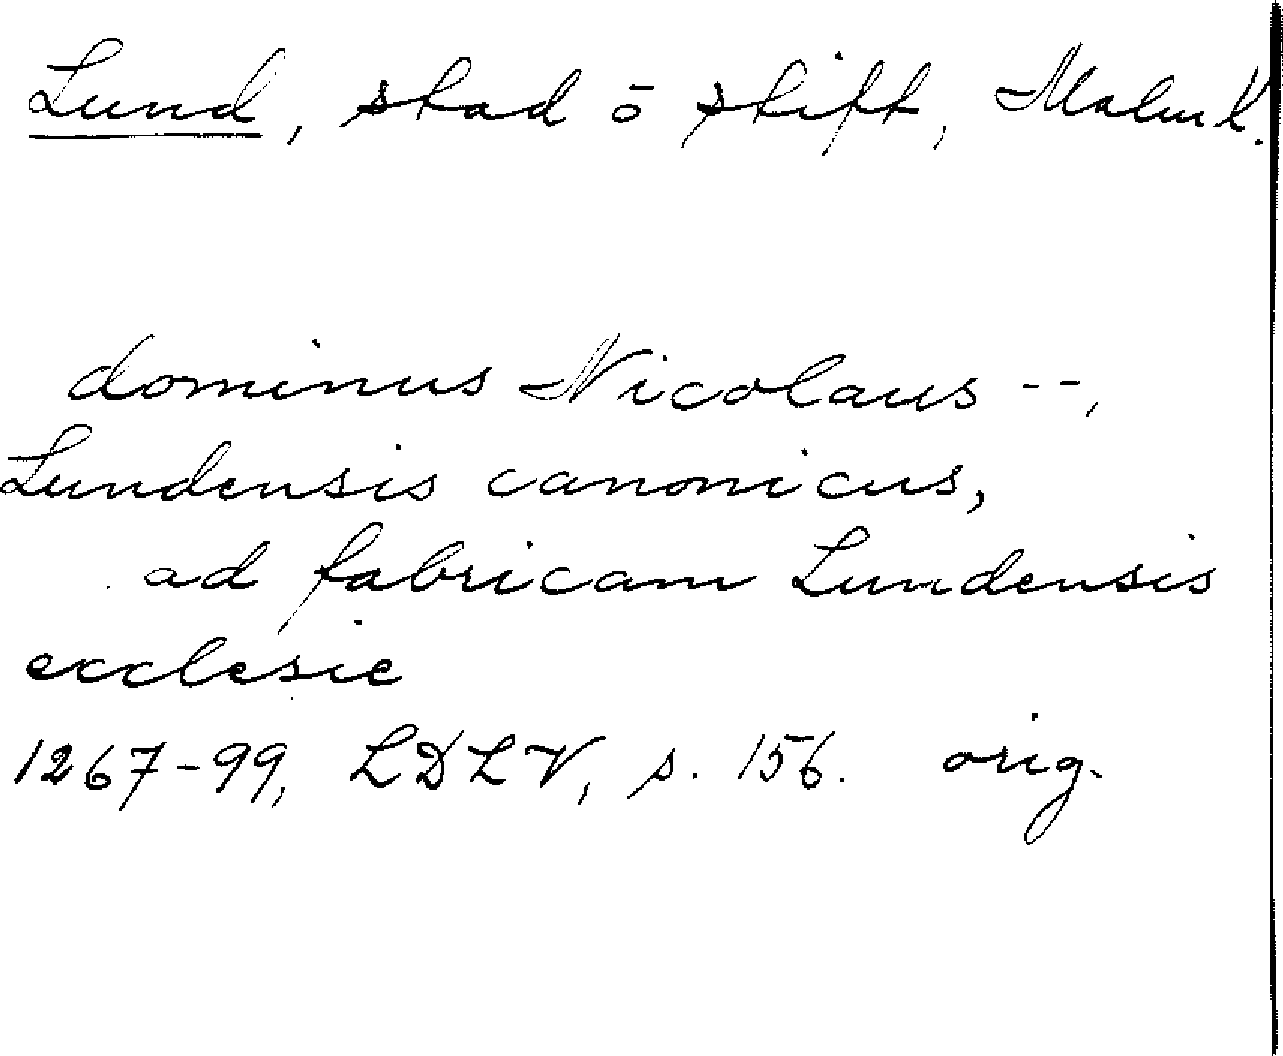 Lund, stad ō stift, Malm l.
dominus Nicolaus --,
Lundensis canonicus,
ad fabricam Lundensis
ecclesie
1267-99, LDLV, s. 156. orig.